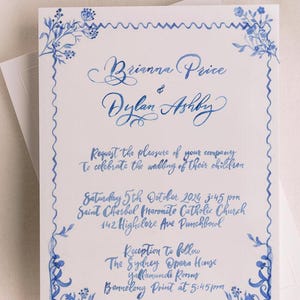 Brianna Price
&
Dylan Ashby
Request the pleasure of your company
To celebrate the wedding of their children
Saturday 5th October 2024 3:45 pm
Saint Charbel Maronite Catholic Church
142 Highclere Ave Punchbowl
Reception to follow
The Sydney Opera House
Yallamundi Rooms
Bennelong Point at 5:45pm